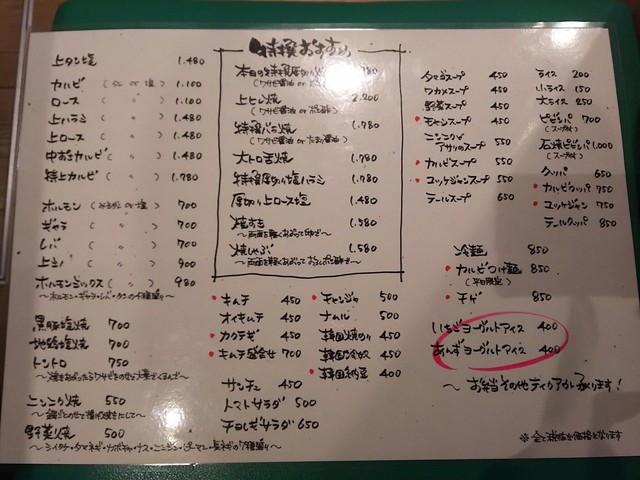 上タン塩 1.480
カルビ (タレ or 塩) 1.100
ロース ( 〃 ) 1.100
上ハラミ ( 〃 ) 1.480
上ロース ( 〃 ) 1.480
中おちカルビ ( 〃 ) 1.480
特上カルビ ( 〃 ) 1.780
ホルモン (みそだれ or 塩) 700
ギャラ ( 〃 ) 700
レバ ( 〃 ) 700
上ミノ ( 〃 ) 900
ホルモンミックス ( 〃 ) 980
〜ホルモン・ギャラ・レバ・タンの4種盛り〜
黒豚塩焼 700
地鶏塩焼 700
トントロ 750
ニンニク焼 550
野菜焼 500
〜シイタケ・タマネギ・カボチャ・ナス・ニンジン・ピーマン・長ネギの7種盛り〜
特撰おすすめ
本日の特撰厚切り
(ワサビ醤油 or ポン酢)
上ヒレ焼 2.200
(ワサビ醤油 or ポン酢)
特撰バラ焼 1.780
(ワサビ醤油 or たまり醤油)
大トロ舌焼 1.780
特撰厚切り塩ハラミ 1.780
厚切り上ロース塩 1.480
焼すき 1.580
〜両面を軽くあぶって卵で〜
焼しゃぶ 1.580
〜両面を軽くあぶっておろしポン酢で〜
キムチ 450
オイキムチ 450
カクテギ 450
キムチ盛合せ 700
サンチュ 450
トマトサラダ 500
チョレギサラダ 650
チャンジャ 500
ナムル 500
韓国焼のり 450
韓国冷奴 450
韓国納豆 400
タマゴスープ 450
ワカメスープ 450
野菜スープ 450
モヤシスープ 450
ニンニクと
アサリのスープ 550
カルビスープ 550
ユッケジャンスープ 550
テールスープ 650
ライス 200
小ライス 150
大ライス 250
ビビンバ 700
(スープ付)
石焼ビビンバ 1.000
(スープ付)
クッパ 650
カルビクッパ 750
ユッケジャン 750
テールクッパ 850
冷麺 850
カルビつけ麺 850
(平日限定)
チゲ 850
いちごヨーグルトアイス 400
あんずヨーグルトアイス 400
〜お弁当その他テイクアウト承ります!